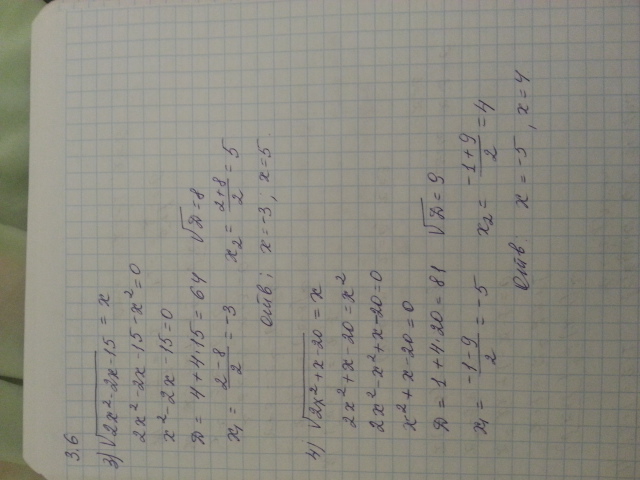 3.6
3) √(2x²-2x-15) = x
2x²-2x-15-x²=0
x²-2x-15=0
D = 4+4·15=64 √D=8
x₁ = (2-8)/2 = -3 x₂ = (2+8)/2 = 5
отв: x=-3, x=5
4) √(2x²+x-20) = x
2x²+x-20=x²
2x²-x²+x-20=0
x²+x-20=0
D=1+4·20=81 √D=9
x₁ = (-1-9)/2 = -5 x₂ = (-1+9)/2 = 4
отв x=-5, x=4